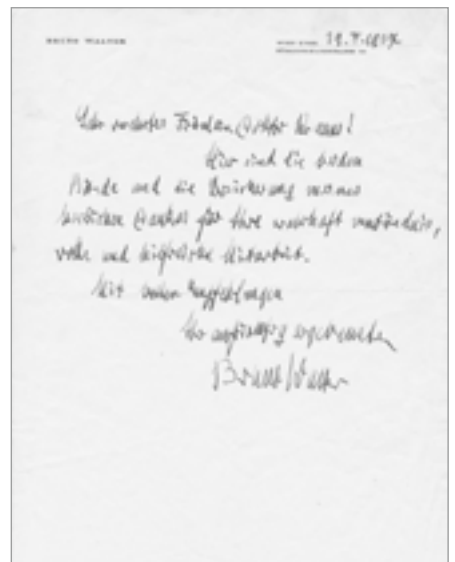 BRUNO WALTER
Sehr verehrtes Fräulein Doktor
Hier sind die beiden
Bände und die Versicherung meines
herzlichen Dankes für Ihre wahrhaft verständnis-
volle und hilfreiche Mitarbeit.
Mit vielen Empfehlungen
Ihr aufrichtig ergebener
Bruno Walter